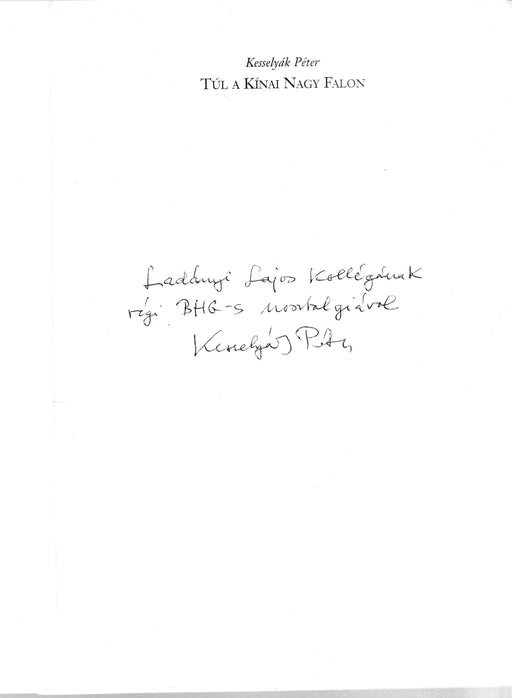 Kesselyák Péter
TÚL A KÍNAI NAGY FALON
Ladányi Lajos Kollégának
régi BHG-s nosztalgiával
Kesselyák Péter